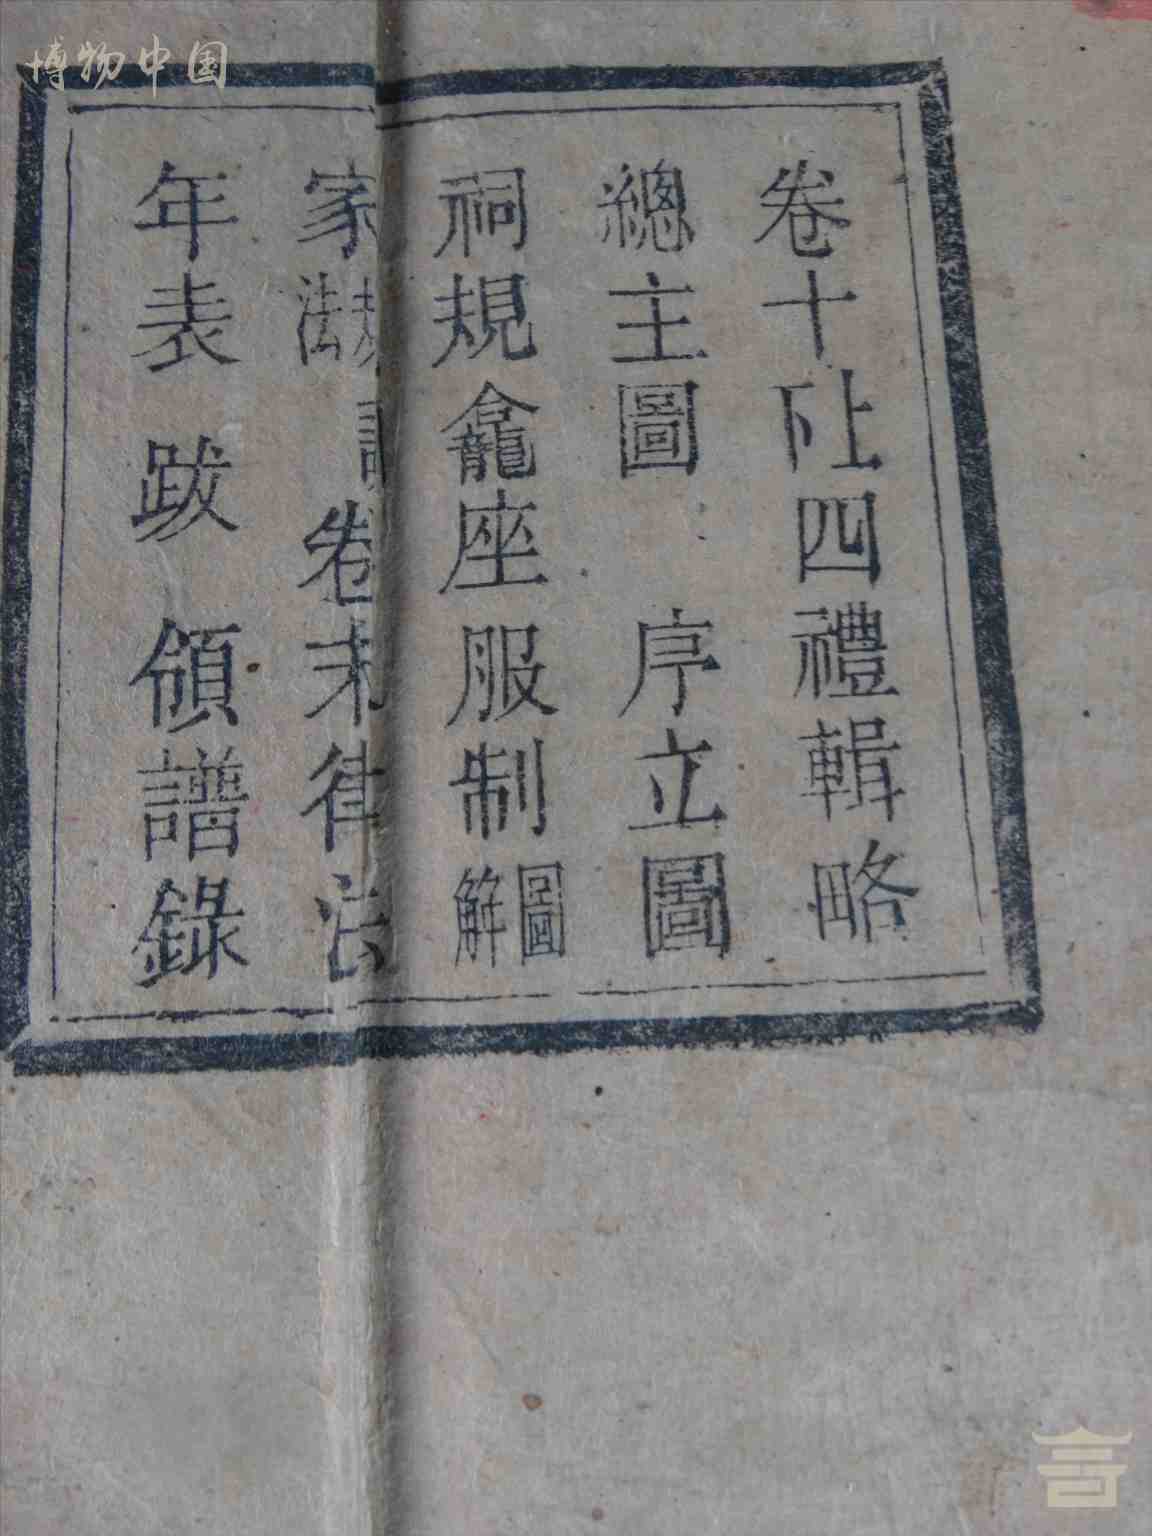 博物中国
卷十上下四禮輯略
總主圖 序立圖
祠規龕座服制圖解
家規法 卷末律法
年表 跋 領譜錄